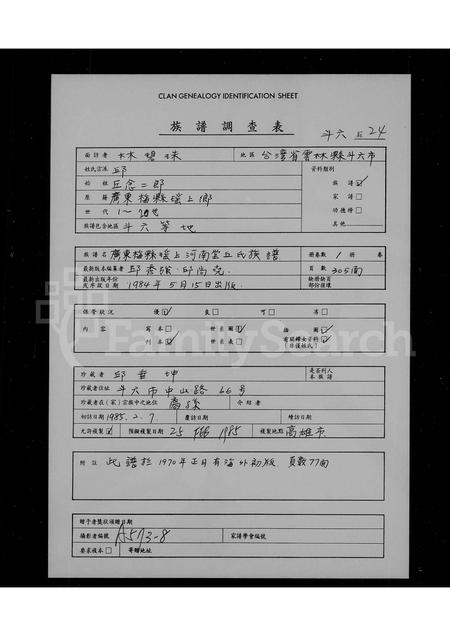 CLAN GENEALOGY IDENTIFICATION SHEET
族譜調查表
斗六 24
面訪者 林 地區 台灣省雲林縣斗六市
姓氏宗派 邱 資料類別
始祖 丘念二郎 族譜☑
原籍 廣東梅縣瑤上鄉 家譜□
世代 1~20世 功德榜□
族譜包含地區 斗六等地 其他
族譜名 廣東梅縣瑤上河南堂丘氏族譜 冊卷數 1 冊 卷
最新版本編纂者 邱秀強・邱尚堯 頁數 305面
最新出版年份 1984年5月15日出版
保管狀況 優☑ 良□ 可□ 劣□
內容 寫本□ 世系圖☑ 插圖□
刊本☑ 世系表□ 有關婦女資料☑
珍藏者 邱 坤
珍藏者住址 斗六市中山路66号
珍藏者在(家)宗族中之地位 裔孫 介紹者
初訪日期 1985.2.7. 書訪日期 繪訪日期
允許複製☑ 預擬複製日期 25 FEB 1985 複製地點 高雄市
附註 此譜於1970年正月有海外初版 頁數77面
贈予者獎狀頒贈日期
攝影者編號 A573-8 家譜學會編號
要求複本□ 寄贈地址
FamilySearch